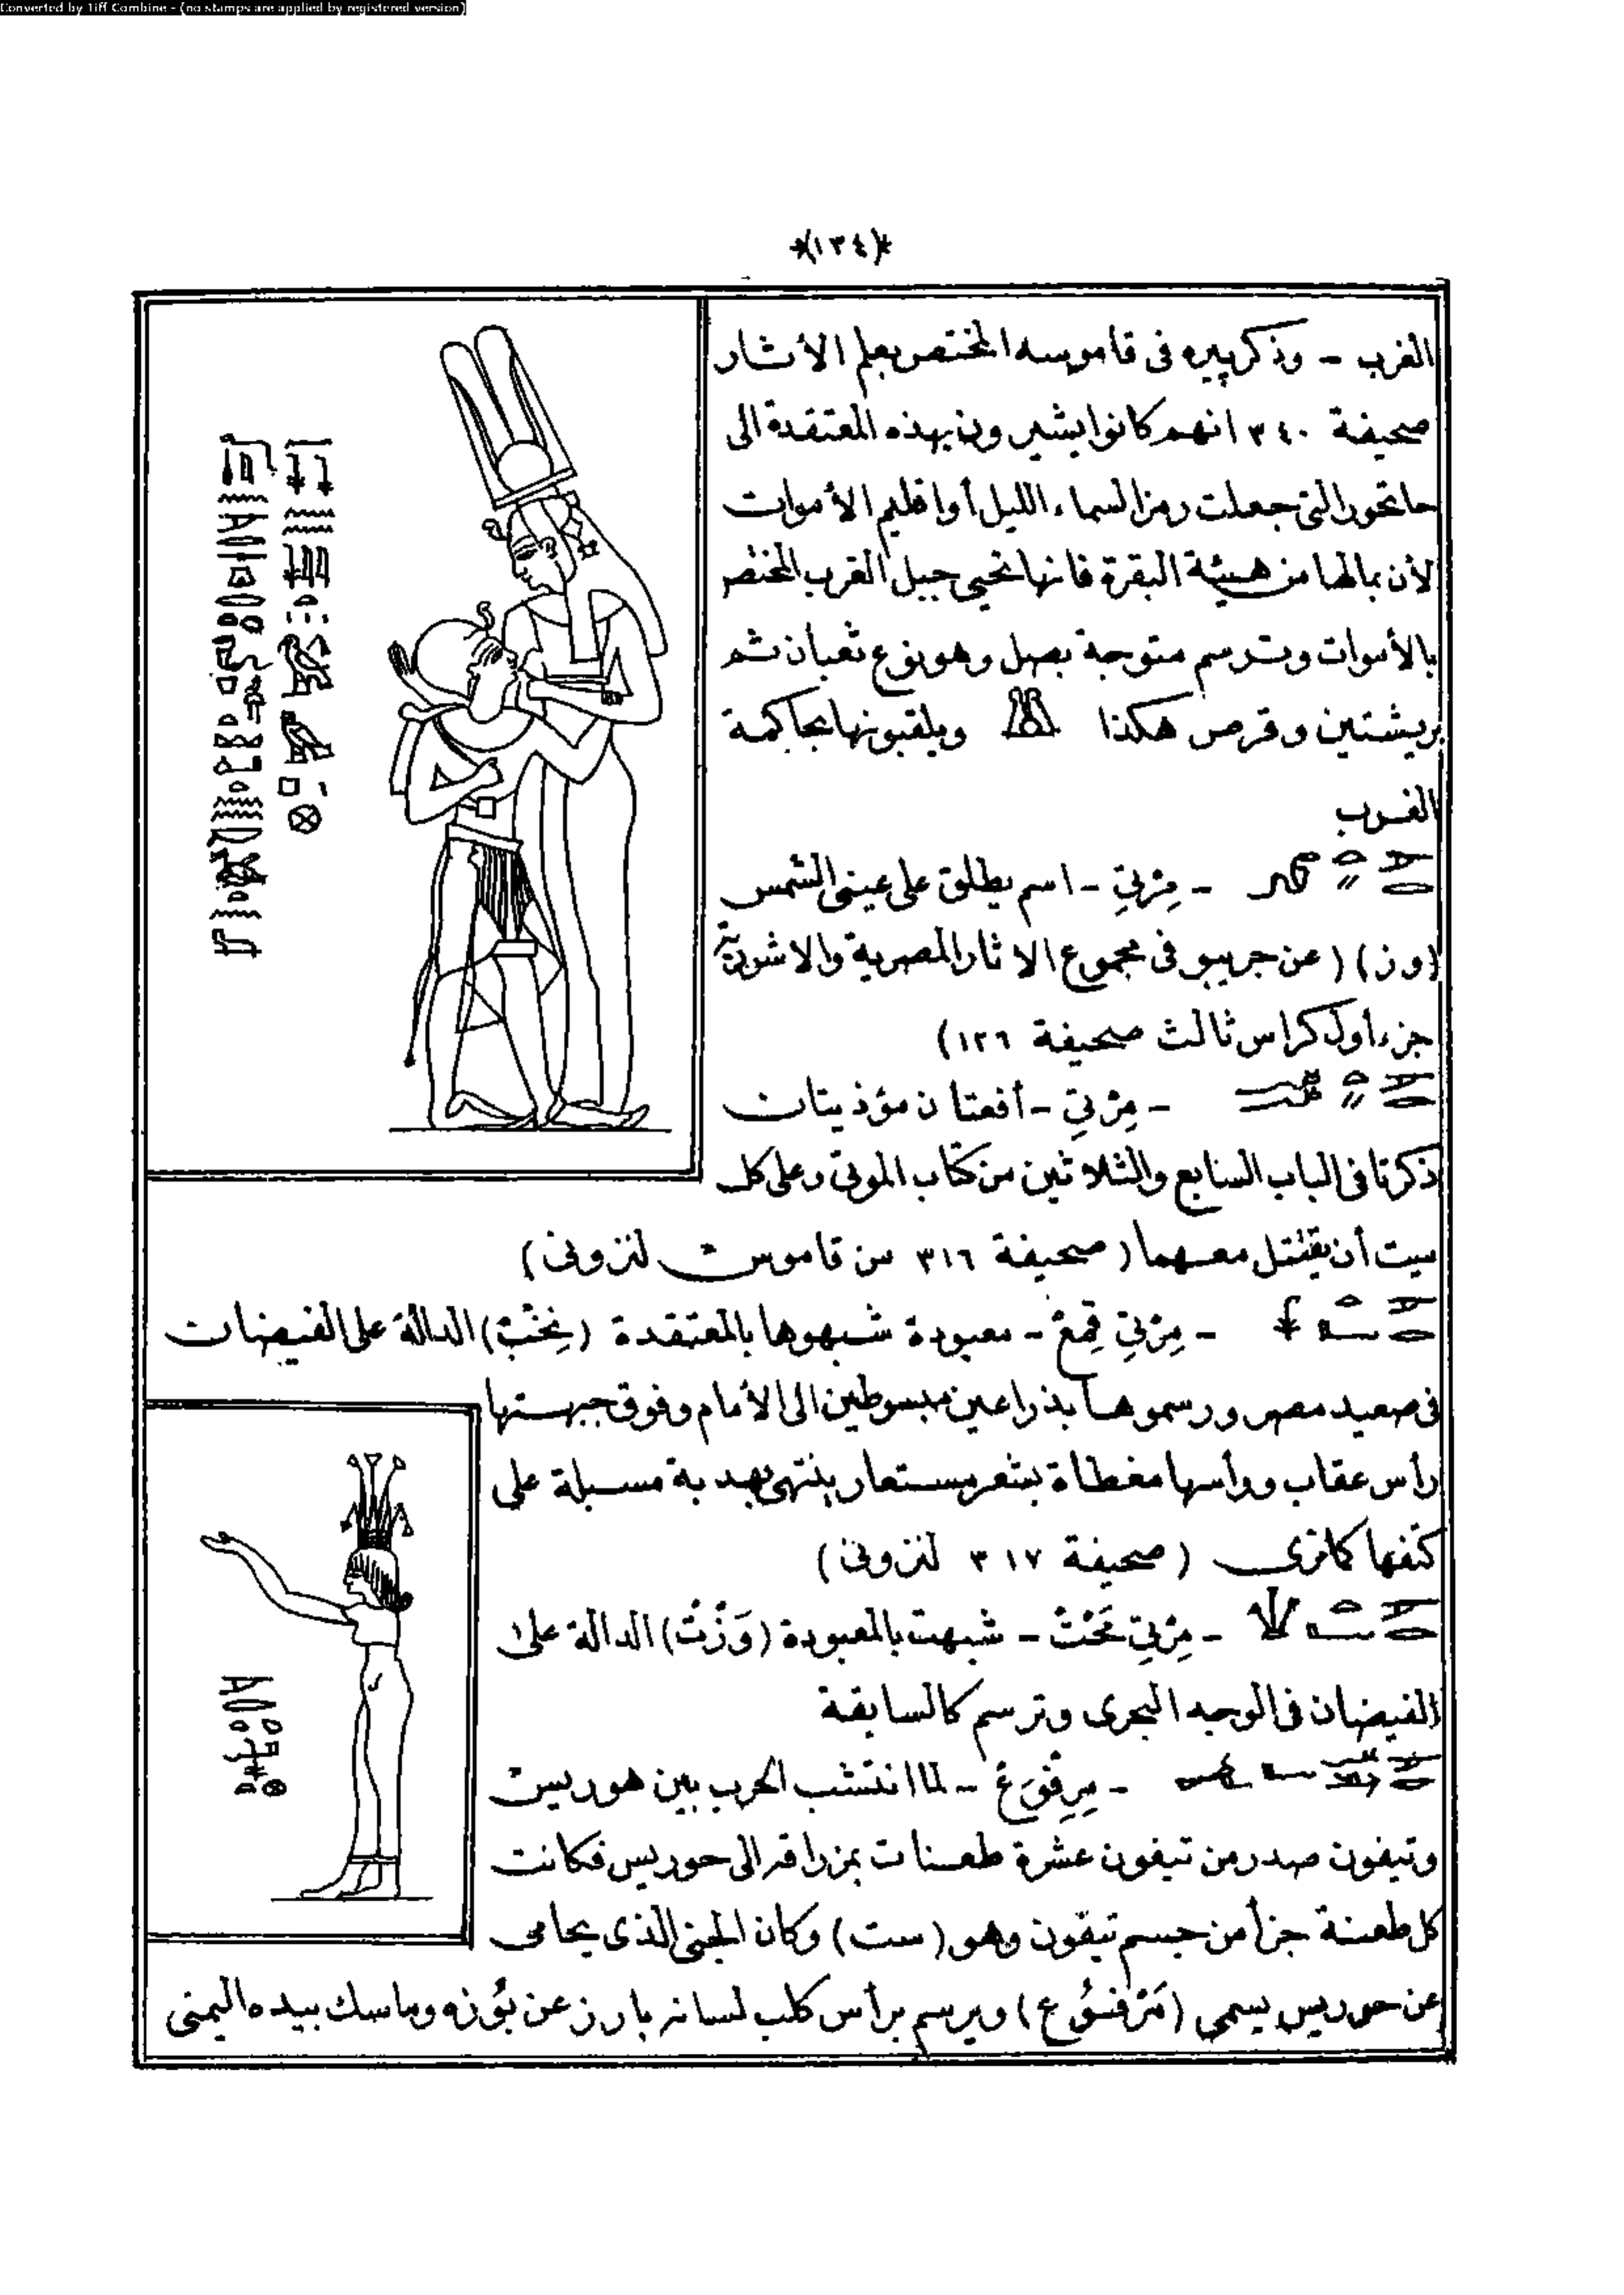 Converted by Tiff Combine - (no stamps are applied by registered version)
*(١٣٤)*
الغرب - وذكر پيره فى قاموسه المختصر بعلم الأثار
صحيفة ٣٤٠ انهم كانوا يشيرون بهذه المعتقدة الى
حاتحور التى جعلت رمز السماء الليل أو اقليم الأموات
لأن بمالها من هيئة البقرة فانها تحيى جبل الغرب المختص
بالأموات وترسم متوجة بصل وهو نوع ثعبان ثم
بريشتين وقرص هكذا ويلقبونها بحاكمة
الغرب
- مِرْتِى - اسم يطلق على عينى الشمس
(ون) (عن جريبو فى مجموع الاثار المصرية والاشورية
جزء أول كراس ثالث صحيفة ١٢٦)
- مِرْتِى - أفعتان مؤذيتان
ذكرتا فى الباب السابع والثلاثين من كتاب الموتى وعلى كل
ميت أن يقتتل معهما (صحيفة ٣١٦ من قاموس لنزونى)
- مِرْتِى قِمَعْ - معبودة شبهوها بالمعتقدة (نِخْبْ) الدالة على الفيضان
فى صعيد مصر ورسموها بذراعين مبسوطين الى الأمام وفوق جبهتها
رأس عقاب ورأسها مغطاة بشعر مستعار ينتهى بهدبة مسبلة على
كتفها كما ترى (صحيفة ٣١٧ لنزونى)
- مِرْتِى مَحْتْ - شبهت بالمعبودة (وَزْتْ) الدالة على
الفيضان فى الوجه البحرى وترسم كالسابقة
- مِرِفُوَعْ - لما انتشب الحرب بين هوريس
وتيفون صدر من تيفون عشرة طعنات بمزراقه الى حوريس فكانت
كل طعنة جزأ من جسم تيفون وهو (ست) وكان الجنى الذى يحامى
عن حوريس يسمى ويرسم برأس كلب لسانه بارز عن بُوزه وماسك بيده اليمنى